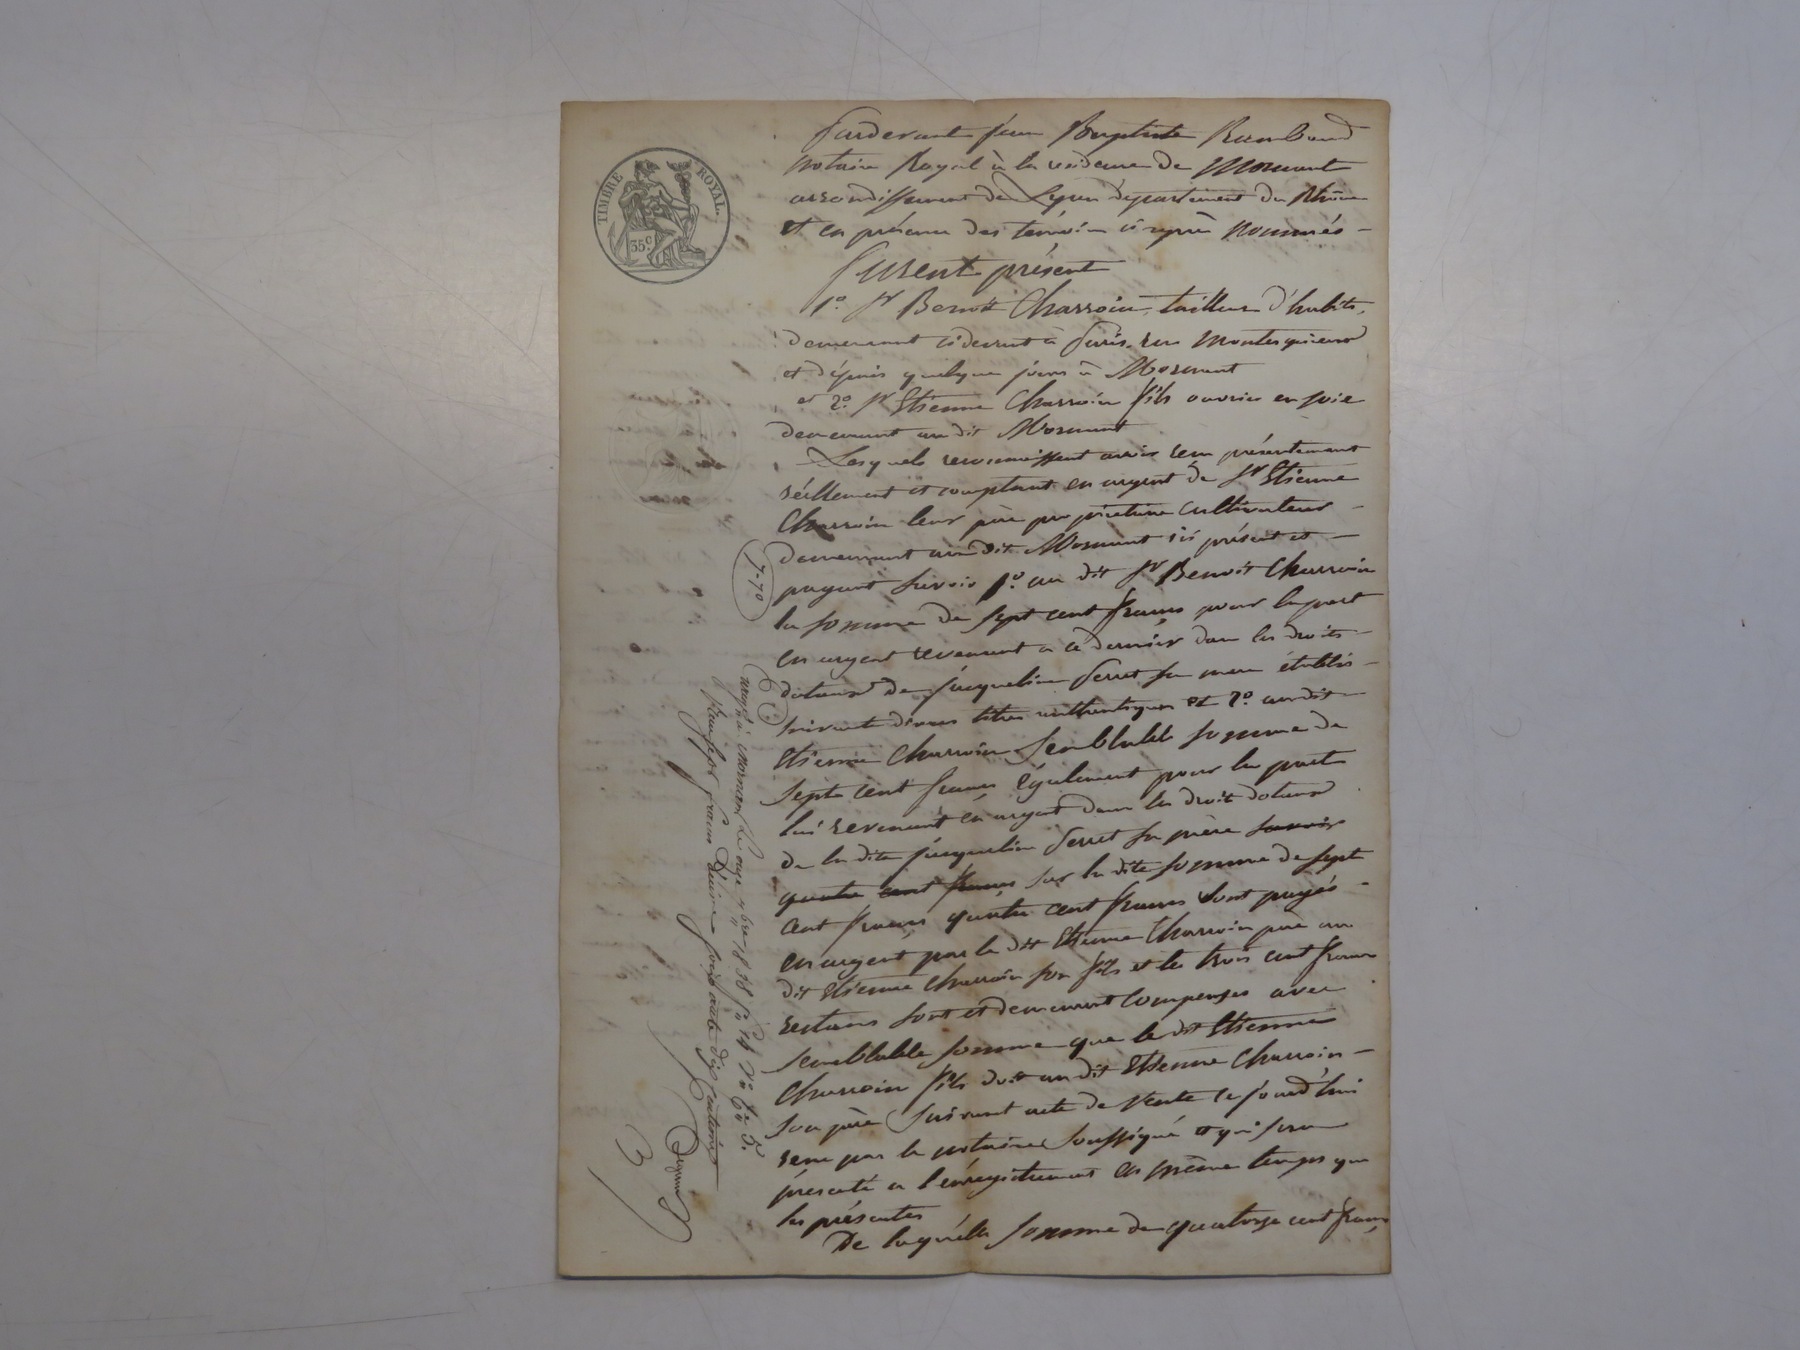 TIMBRE ROYAL.
35 c
Pardevant Jean Baptiste Rambaud
notaire Royal à la residence de Mornant
arrondissement de Lyon département du Rhône
et en présence des témoins ci après nommés -
furent présent
1° Sr Benoît Charroin, tailleur d'habits,
demeurant ci devant à Paris, rue Montesquieu
et dépuis quelque jours à Mornant
et 2° Sr Etienne Charroin fils ouvrier en soie
demeurant au dit Mornant
Lesquels reconnaissent avoir reçu présentement
réellement et comptant en argent de Sr Etienne
Charroin leur père propriétaire cultivateur -
demeurant au dit Mornant ici présent et -
payant savoir 1° au dit Sr Benoît Charroin
la somme de sept cent francs pour la part
en argent revenant a ce dernier dans les droits -
dotaux de Jacqueline Perret sa mere établis -
suivant divers titres authentiques et 2° au dit -
Etienne Charroin semblable somme de
sept cent francs également pour la part
lui revenant en argent dans les droit dotaux
de la dite Jacqueline Perret sa mère savoir
quatre cent francs sur la dite somme de sept
cent francs quatre cent francs sont payés -
en argent par le dit Etienne Charroin père au
dit Etienne Charroin son fils et les trois cent francs
restans sont et demeurent compensés avec
semblable somme que le dit Etienne
Charroin fils doit au dit Etienne Charroin -
son père suivant acte de vente ce jourd'hui
reçu par le notaire soussigné et qui sera
présenté a l'énregistrement en même temps que
les présentes
De laquelle somme de quatorze cent francs,
7-70
Enregistré à Mornant le onze 1838
Reçu sept francs dixième soixante dix centimes